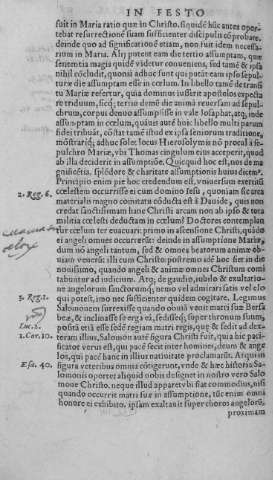 IN FESTO
suit in Maria ratio que in Christo. siquidē hũc antes opor-
tebat resurrectiõe suam sufficienter discipulis cõprobare.
deinde quo ad significationē etiam, non fuit idem necessa-
rium in Maria. Alij putent eam die tertio assumptam, quæ
sententia magis quidē videtur conueniens, sed tamē & ipsa
nihil cõcludit, quoniā adhuc sunt qui putēt eam ipso sepul-
turæ die assumptam esse in cœlum. In libello tamē de transi-
tu Mariæ refertur, quia dominus iusserit apostolos expecta-
re triduum, sicq́; tertio demũ die animā reuersam ad sepul-
chrum, corpus denuo assumpsisse in vale Iosaphat, atq́; inde
assumptam in cœlum, quāuis autē huic libello multi parum
fidei tribuāt, cõstat tamē istud ex ipsa seniorum traditione,
mõstratidq́; adhuc solet locus Hierosolymis nõ procul a se-
pulchro Mariæ, vbi Thomas cingulum eius acceperit, quod
ab illa deciderit in assumptiõe. Quicquid hoc est, nos de ma-
gnificētia. splēdore & charitate assumptionis huius dicemꝰ.
Principio enim piè hoc credendum est, vniuersum exercitũ
cœlestem occurrisse ei cum domino Iesu, quoniam si carca
materialis magno comitatu cõducta est à Dauide, quis non
credat sanctissimam hanc Christi arcam non ab ipso & tota
militia cœlesti deductam in cœlum? Doctorum est ple-
rũq; cœlum ter euacuari: primo in ascensione Christi, quādo
ei angeli omnes occurrerũt: deinde in assumptione Mariæ,
dum nõ angeli tantum, sed & omnes beatorum animæ ob-
uiam venerāt illi cum Christo: postremo idē hoc fiet in die
nouissimo, quando angeli & animæ omnes Christum comi
tabuntur ad iudicium. Atq́; de gaudio, iubilo & exultatio-
ne angelorum sanctorumq́; nemo vel admirari satis vel elo
qui potest, imo nec sufficienter quidem cogitare. Legimus
Salomonem surrexisse quando obuiā venit matri suæ Bersa-
beæ, & inclinasse se erga eā, sedisseq́; super thronum suum,
positā etiā esse sedē regiam matri regis, quæ & sedit ad dex-
teram illius, Salomon autē figura Christi fuit, quia hic pac-
ificator verus est, qui pacē fecit inter homines, deum & ange
los, qui pacē hanc in illius natiuitate proclamarũt. Atqui in
figura veteribus omnia cõtigerunt, vnde & hæc historia Sa-
lomonis oportet aliquid nobis designet in nostro vero Salo
mone Christo. neque illud apparet vbi fiat commodius, nisi
quando occurrit matri suæ in assumptione, tũc enim omni
honore ei exhibito. ipsam exaltauit super choros angelorũ,
proximam
2. Reg. 6.
3. Reg. 2.
Luc. 2.
1. Cor. 10.
Esa. 40.